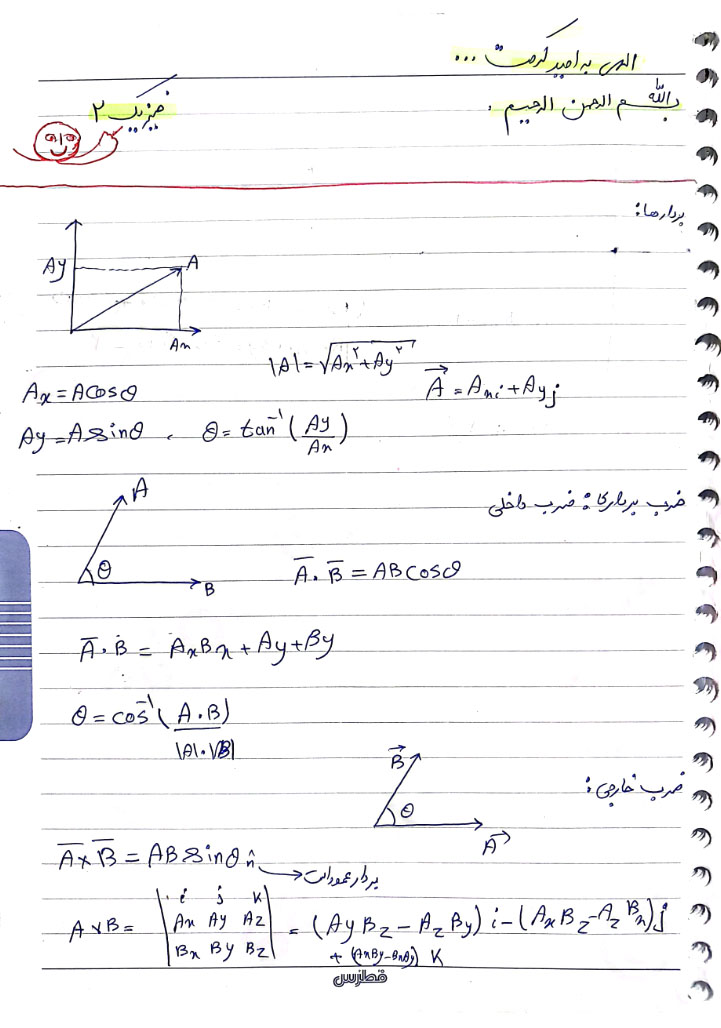 الهی به امید کرمت ...
بسم الله الرحمن الرحیم .
فیزیک ۲
بردارها:
Ay
A
Ax
|A| = √Ax² + Ay²
Ax = A cosθ
A⃗ = Axi + Ayj
Ay = A sinθ , θ = tan⁻¹(Ay/Ax)
ضرب برداری: ضرب داخلی
A
θ
B
A̅ . B̅ = AB cosθ
A̅ . B = AxBx + Ay + By
θ = cos⁻¹(A.B / |A|.|B|)
ضرب خارجی:
B⃗
θ
A⃗
A̅ × B̅ = AB sinθ n̂ → بردار عمود است
A × B = | i j k | = (AyBz − AzBy) i − (AxBz − AzBx) j
| Ax Ay Az |
| Bx By Bz |
+ (AxBy − BxAy) K
قطازس